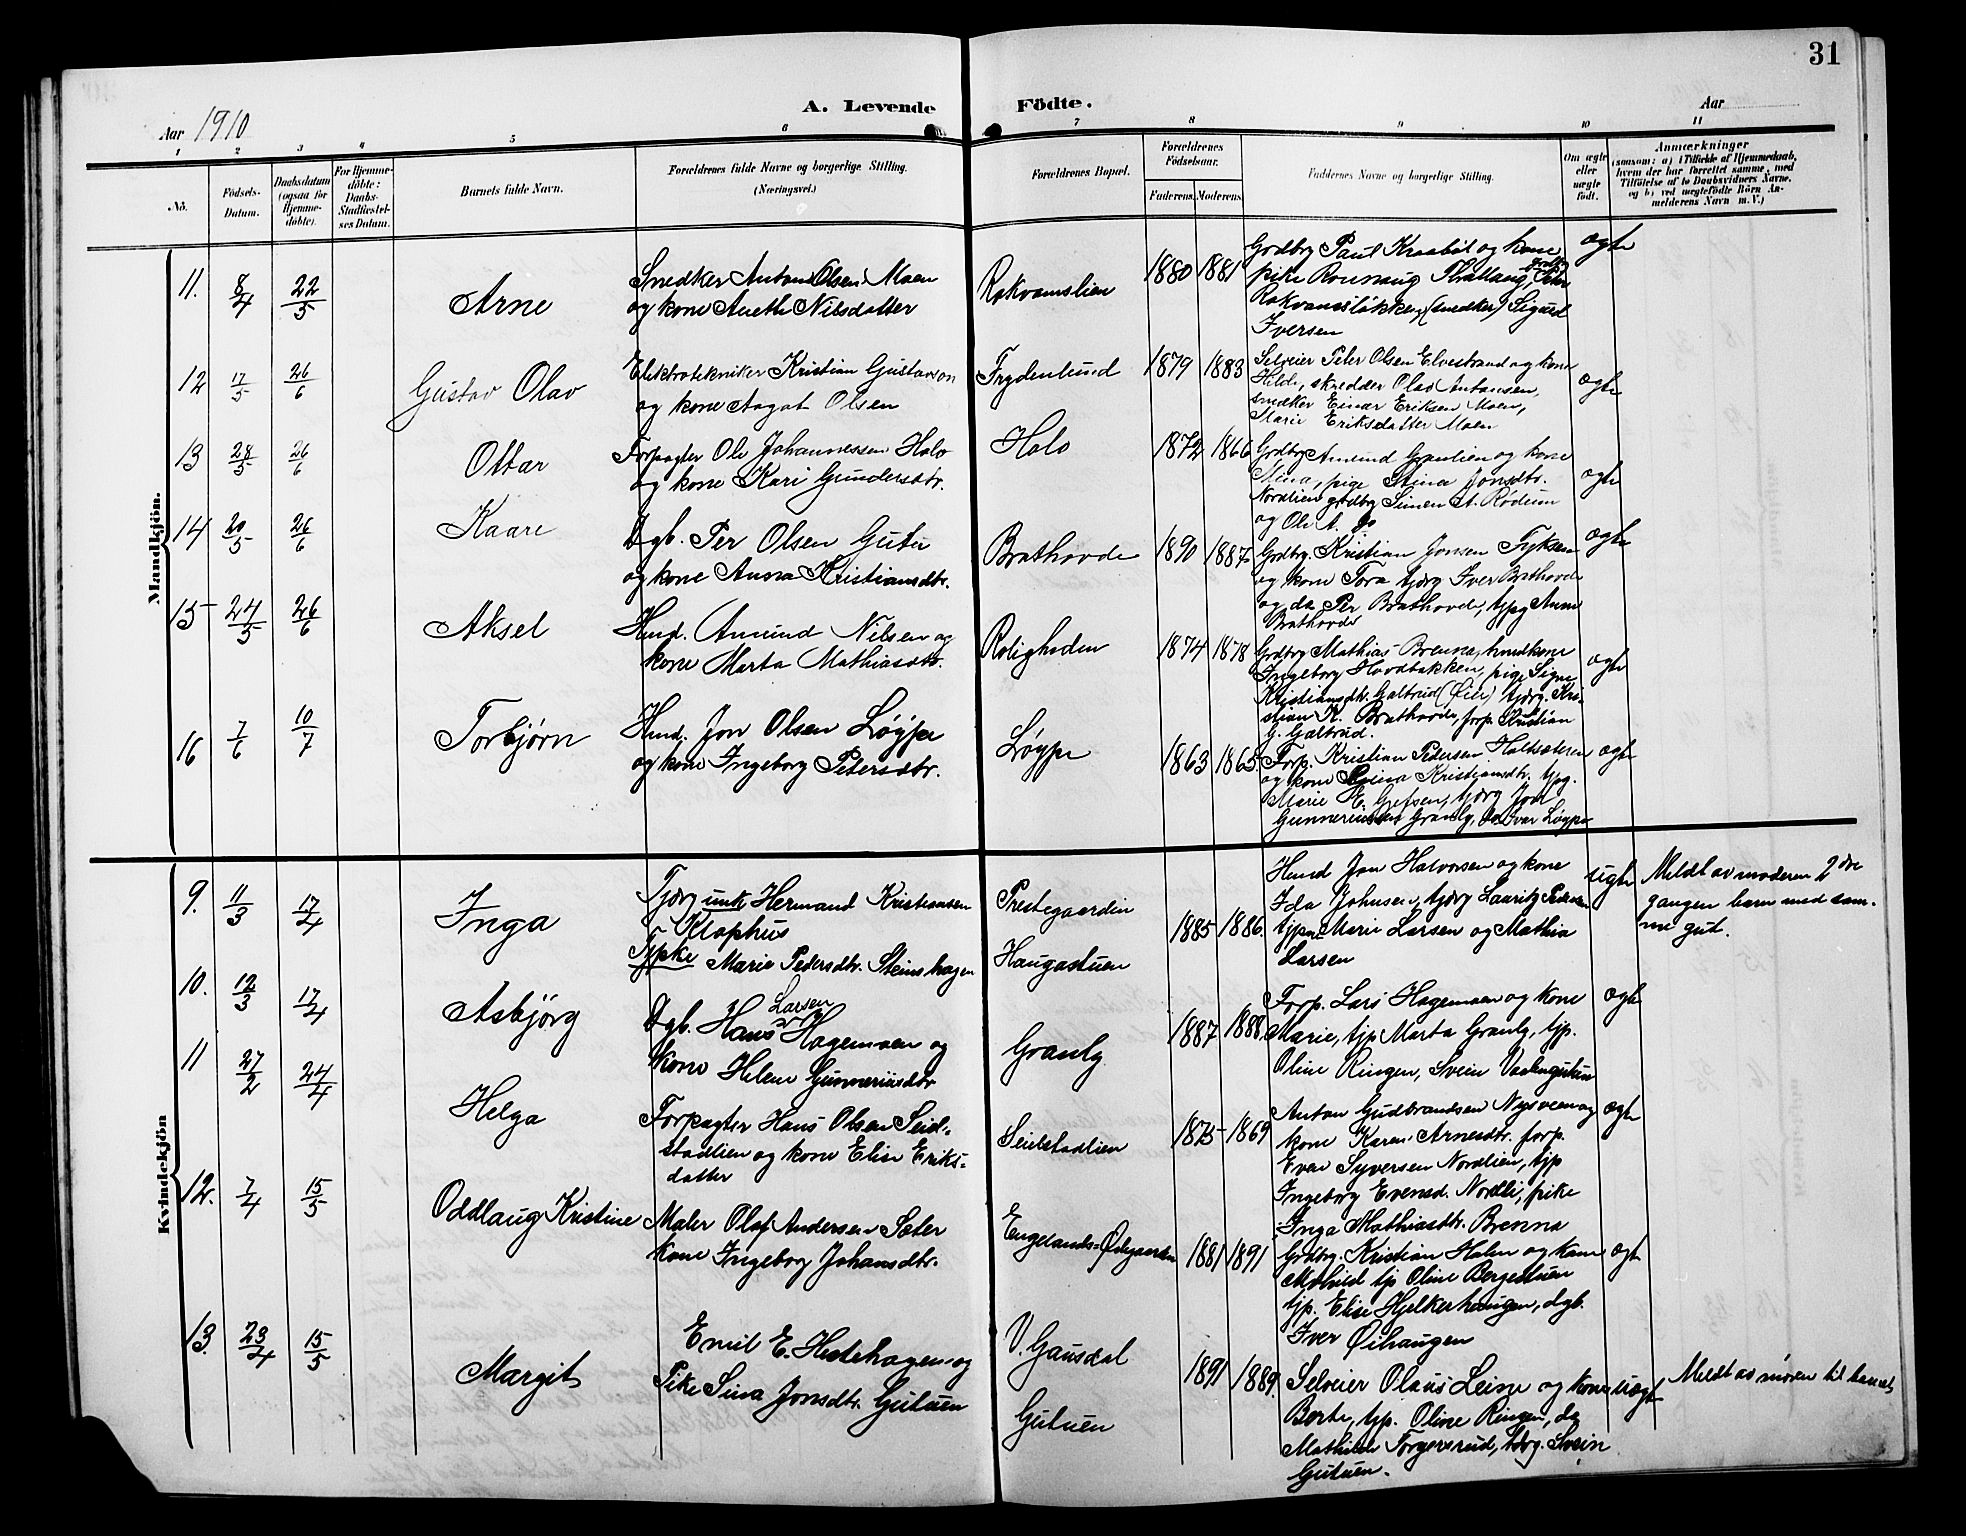 31
A. Levende Födte.
Aar 1910
Aar
1 2 3 4 5 6 7 8 9 10 11
No.
Födsels-Datum.
Daabsdatum (ogsaa for Hjemmedöbte).
For Hjemmedöbte: Daabs-Stadfæstelses Datum.
Barnets fulde Navn.
Forældrenes fulde Navne og borgerlige Stilling.
(Næringsvei.)
Forældrenes Bopæl.
Forældrenes Födselsaar.
Faderens. Moderens.
Faddernes Navne og borgerlige Stilling.
Om ægte eller uægte födt.
Anmærkninger
(saasom: a) i Tilfælde af Hjemmedaab,
hvem der har forrettet samme, med
Tilföielse af to Daabsvidners Navne.
og b) ved uægtefödte Börn An-
melderens Navn m. V.)
Mandkjön.
11. 8/4 22/5 Arne
Snedker Anton Olsen Moen
og kone Anethe Nilsdatter
Rokvamslien 1880 1881
Grdbrg Paul Kraabøl og kone
pike Rønnaug Thrallaug,
Rokvamsløkken (snedker) Sigurd
Iversen
ægte
12 17/5 26/6 Gustav Olav
Elektrotekniker Kristian Gustavson
og kone Aagot Olsen
Frydenlund 1879 1883
Selveier Peter Olsen Elvestrand og kone
Hilda, skrædder Olav Antonsen,
snedker Einar Eriksen Moen,
Marie Eriksdatter Moen
ægte
13 28/5 26/6 Ottar
Forpagter Ole Johannessen Holo
og kone Kari Gundersdtr.
Holo 1872 1866
Grdbrg Amund Graulien og kone
Stina, pige Stina Jonsdtr.
Nordlien grdbrg Simen A. Rødum
og Ole A. do
ægte
14 20/5 26/6 Kaare
Dgb. Per Olsen Gutu
og kone Anna Kristiansdtr.
Brathovde 1890 1887
Grdbrg. Kristian Jonsen Fyksen
og kone Tora tjdrg Iver Brathovde
og do Per Brathovde, tjpg Anne
Brathovde
ægte
15 24/5 26/6 Aksel
Husd. Amund Nilsen og
kone Marta Mathiasdtr.
Roligheden 1874 1878
Grdbrg Mathias Brenna, husdkone
Ingeborg Hovdbakken, pige Signe
Kristiansdtr. Galtrud (Öier) tjdrg. Kri-
stian K. Brathovde, forp. Kristian
G. Galtrud.
ægte
16 7/6 10/7 Torbjørn
Husd. Jon Olsen Løype
og kone Ingeborg Petersdtr.
Løype 1863 1865.
Forp. Kristian Pedersen Holtsæteren
og kone Lina Kristiansdtr. tjpg.
Marie E. Gjefsen, tjdrg Jon
Gunneriusen Granly, do Ivar Løype
ægte
Kvindekjön
9. 11/3 17/4 Inga
Tjdrg unk. Hermand Kristiansen
Klophus
Tjpke Marie Pedersdtr. Steinshagen
Prestegaarden
Haugastuen 1885 1886.
Husd Jon Halvorsen og kone
Ida Johnsen, tjdrg Lauritz Pedersen
tjpn Marie Larsen og Mathia
Larsen
uægte
Meldt av moderen 2dre
gangen barn med sam-
me gut.
10. 12/3 17/4 Asbjörg
Dgb. Hans Larsen Hagemoen og
kone Helene Gunneriusdtr
Granly 1887 1888.
Forp. Lars Hagemoen og kone
Marie, tjp Marta Granly, tjp.
Oline Ringen, Svein
ægte
11 27/2 24/4 Helga
Forpagter Hans Olsen Seiel-
stadlien og kone Elise Eriks-
datter
Seielstadlien 1875 1869
Anton Gudbrandsen Nysveen og
kone Karen Arnesdtr. forp.
Evar Syversen Nordlien, tjp
Ingeborg Evensd. Nordli, pike
Inga Mathiasdtr. Brenna
ægte
12. 7/4 15/5 Oddlaug Kristine
Maler Olaf Andersen Sæter
kone Ingeborg Johansdtr.
Engelands-Ødegaarden 1881 1891
Grdbrg. Kristian Holen og kone
Mathild tjp Oline Bergestuen
tjp. Elise Hjelkerhaugen, dgb.
Iver Øihaugen
ægt
13. 23/4 15/5 Margit
Emil E. Hestehagen og
Pike Sina Jonsdtr. Gutuen
V. Gausdal
Gutuen 1891 1889.
Selveier Olaus Leine og kone
Berte, tjp. Oline Ringen, do
Mathilde Torgersrud, tjdrg. Svein
Gutuen.
uægt
Meldt av moren til barnet